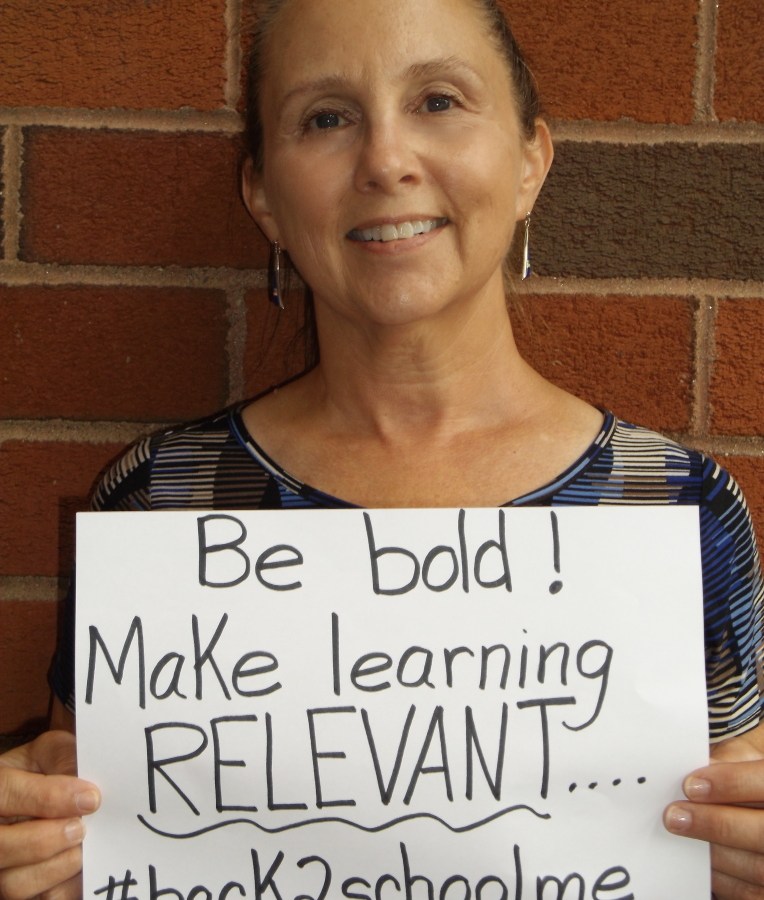 Be bold!
Make learning
RELEVANT....
#back2schoolme